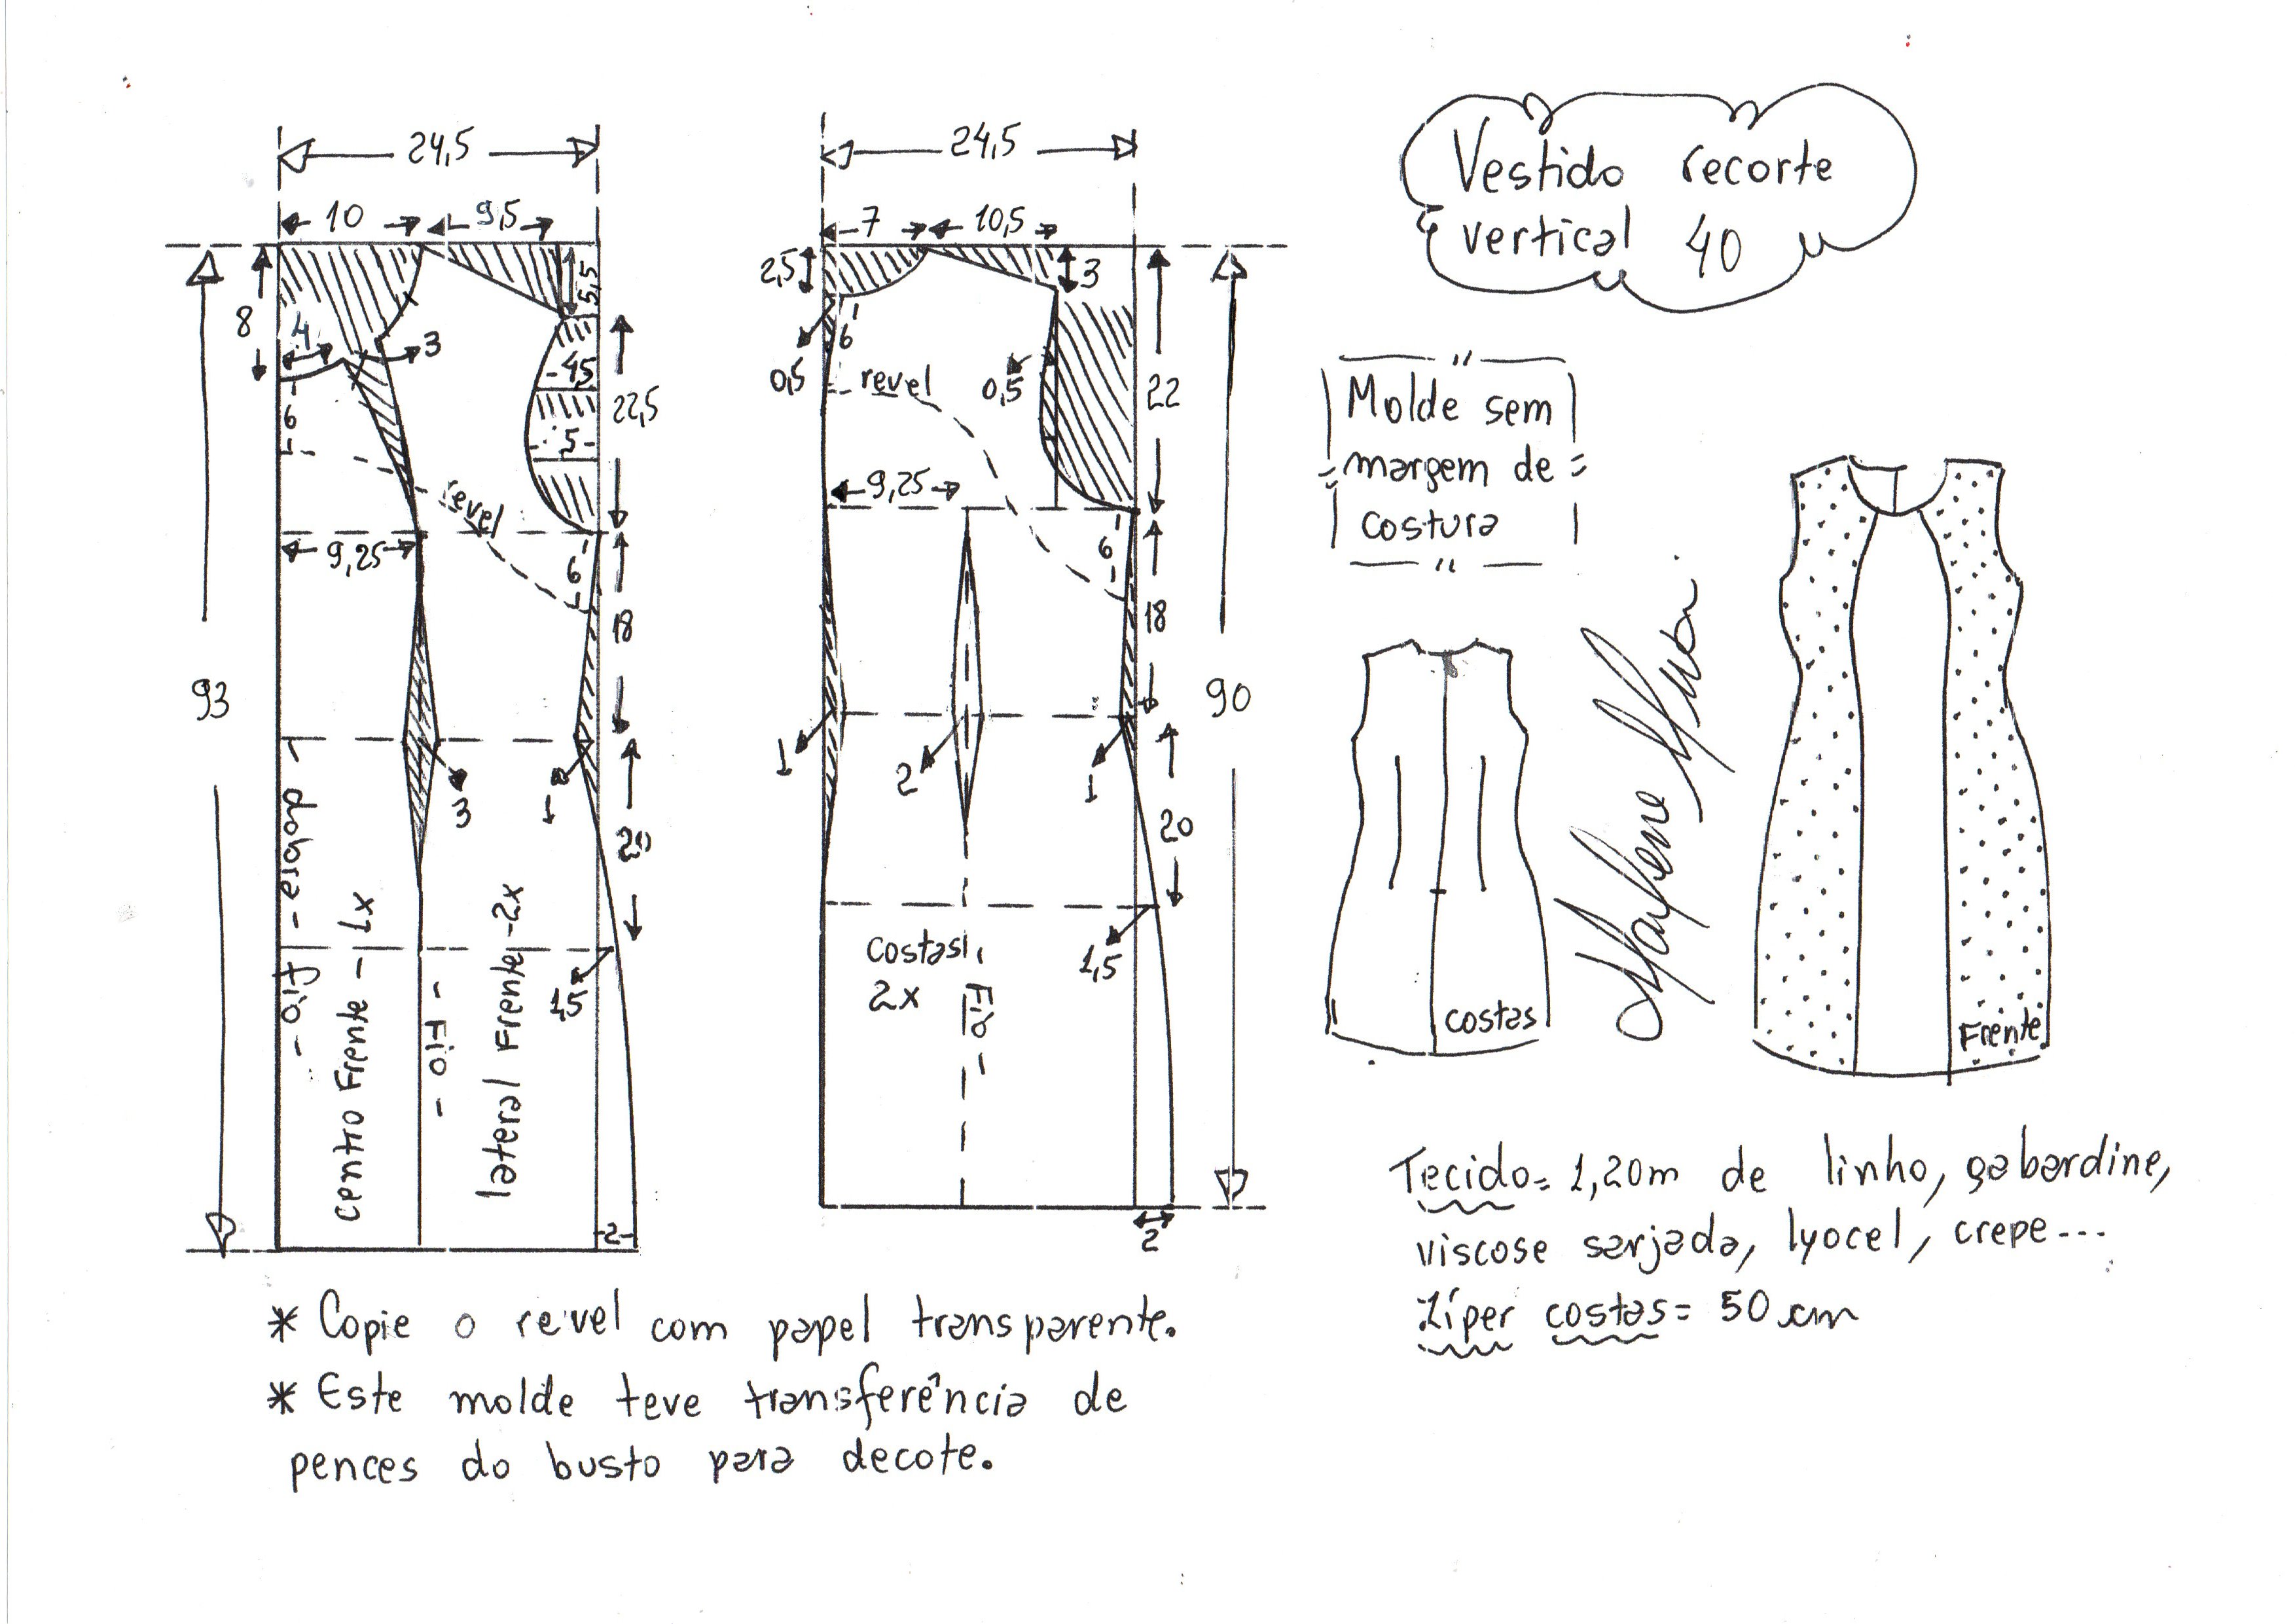 Vestido recorte
vertical 40
Molde sem
margem de
costura
24,5
10
9,5
8
4
3
5,5
4,5
5
22,5
6
revel
9,25
6
18
93
3
1
20
dobra
Fio
centro Frente - 1x
Fio
lateral Frente - 2x
1,5
2
24,5
7
10,5
2,5
3
6
0,5
revel
0,5
22
9,25
6
18
90
1
2
1
20
costas
2x
Fio
1,5
2
costas
Marlene Mukai
Frente
Tecido = 1,20m de linho, gabardine,
viscose sarjada, lyocel, crepe...
Zíper costas = 50 cm
* Copie o revel com papel transparente.
* Este molde teve transferência de
pences do busto para decote.